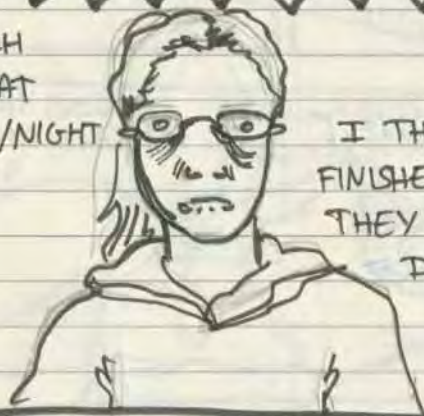 CH
AT
/NIGHT
I TH
FINISHE
THEY
D